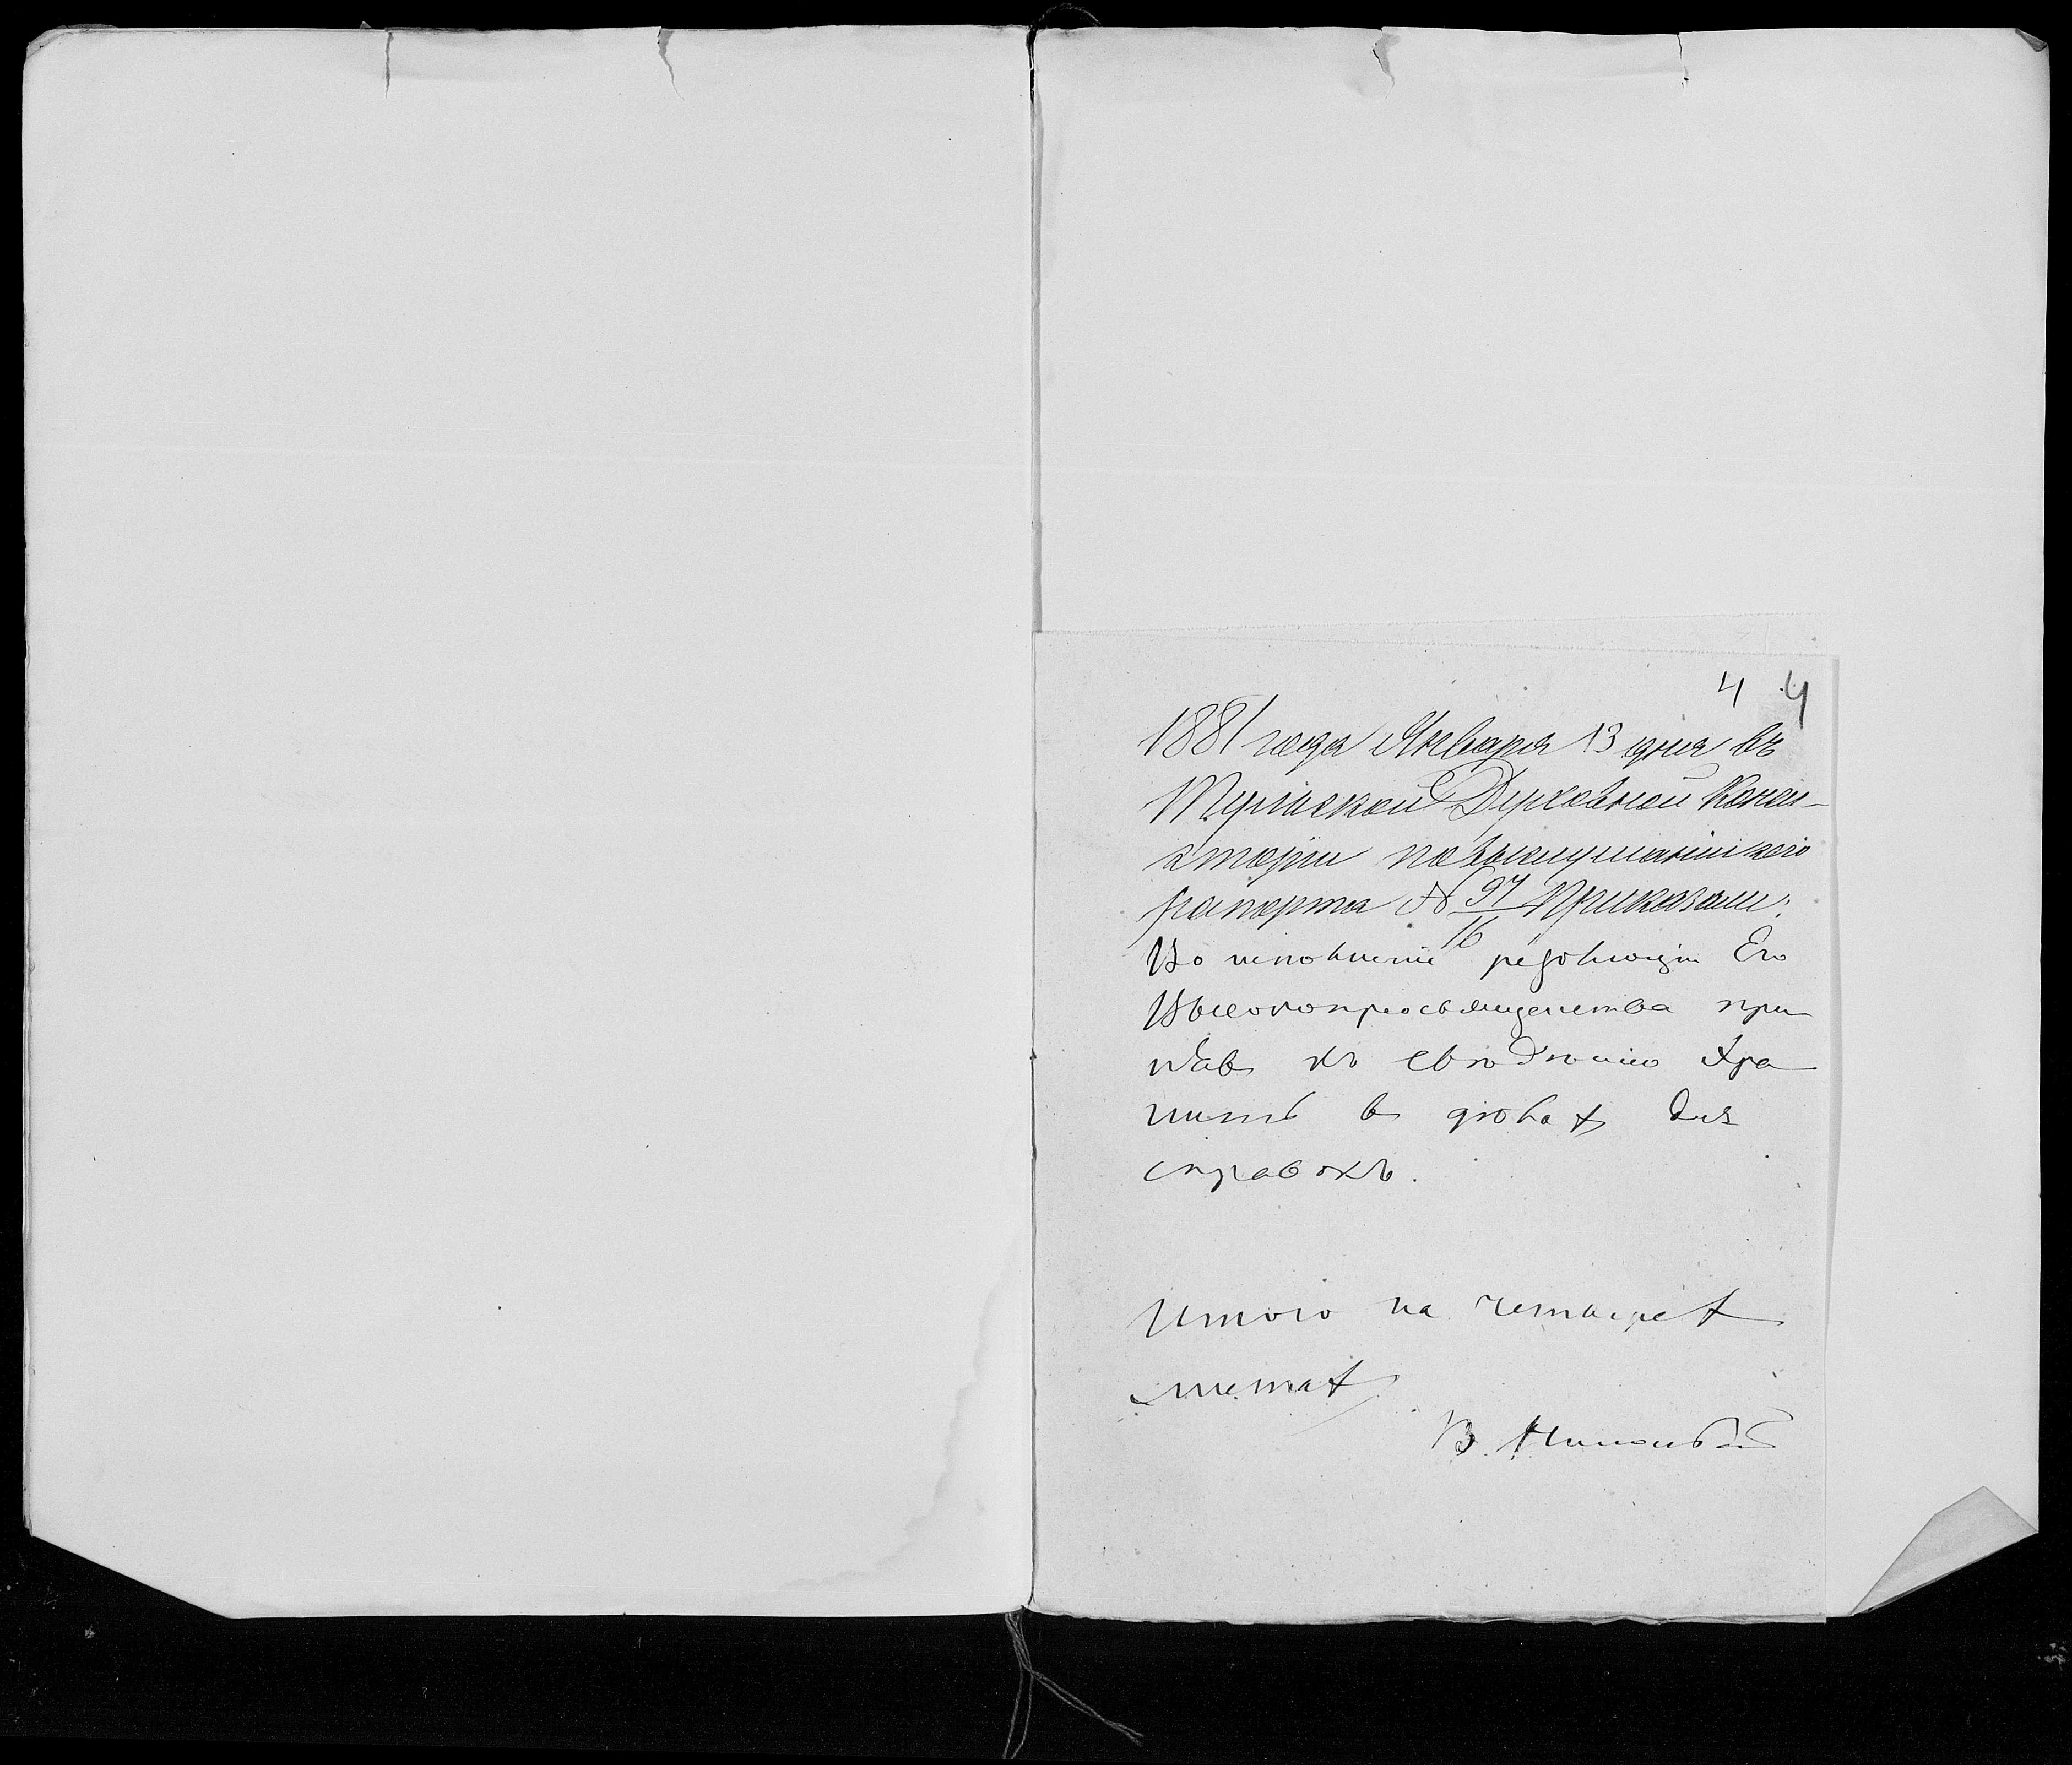 4 4
1881 года Января 13 дня въ
Тульской Духовной Конси-
сторіи по выслушаніи сего
рапорта № 97/16 Приказали:
Во исполненіе резолюціи Его
Высокопреосвященства при
нявъ къ свѣдѣнію хра
нить въ дѣлахъ для
справокъ.
Итого на четырех
листах
В.